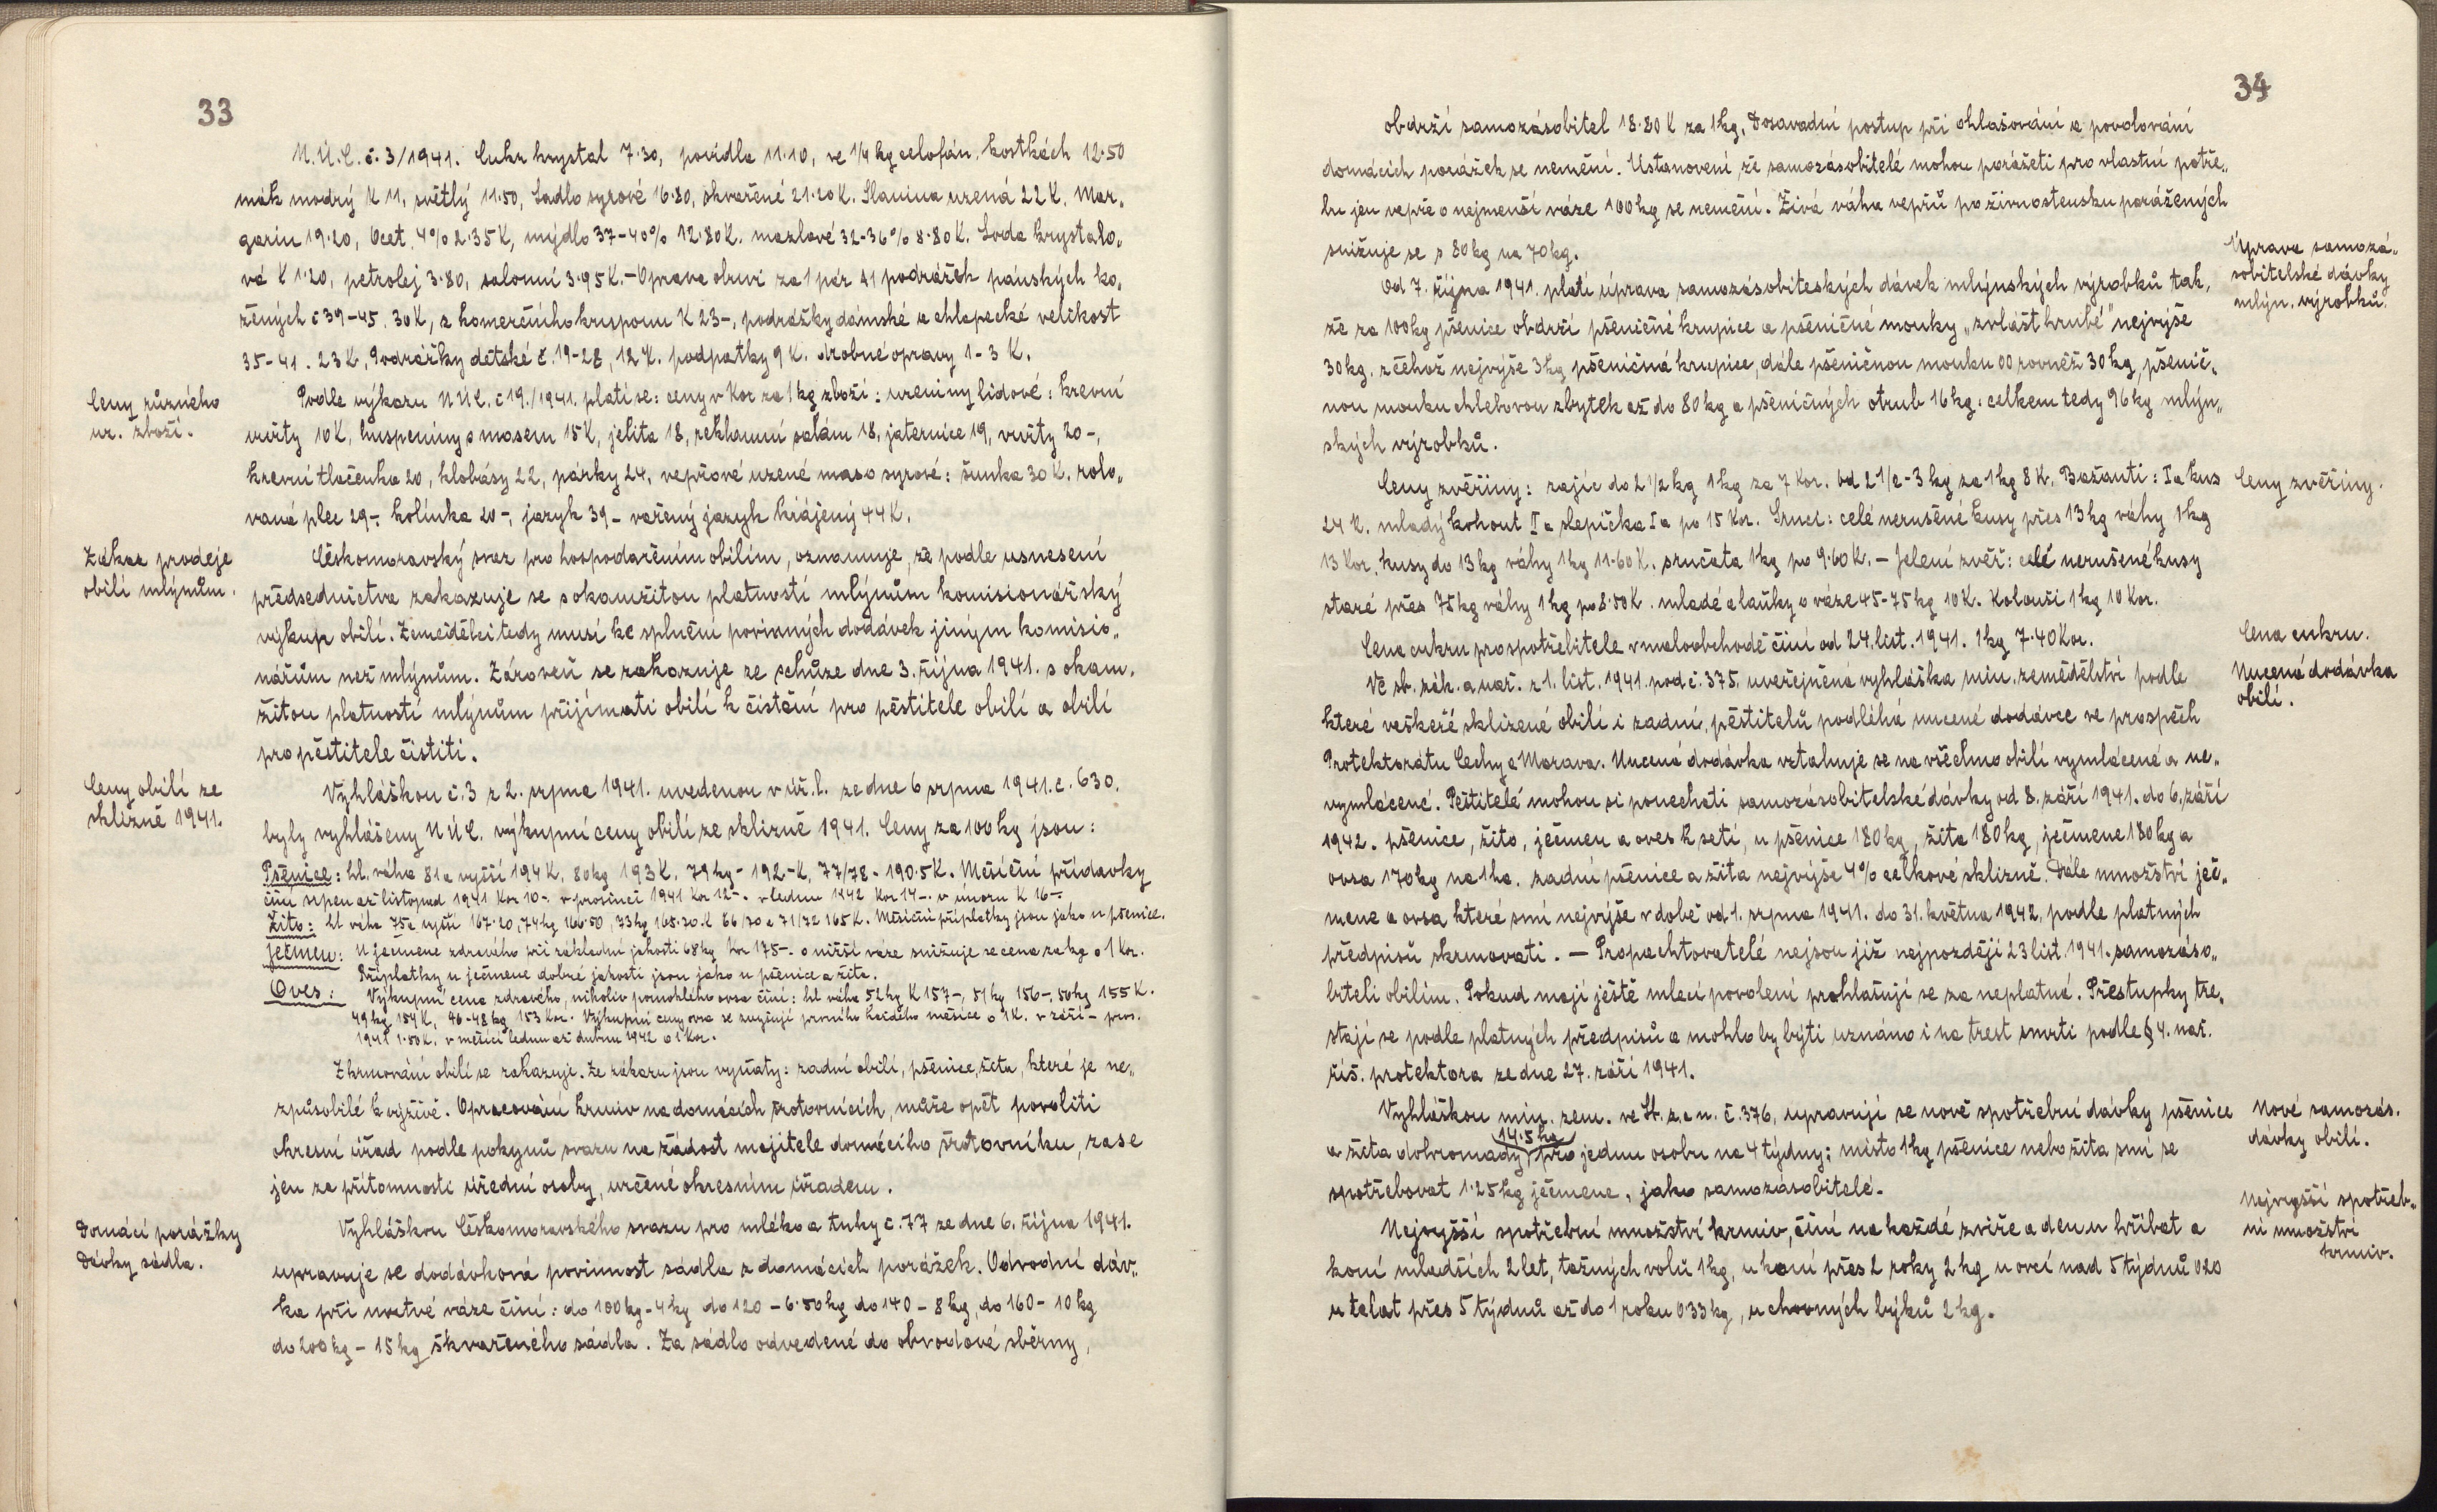 33
N.Ú.C. č. 3/1941. Cukr krystal 7·30, povidla 11·10, ve 1/4 kg celofán, kostkách 12·50
mák modrý K 11, světlý 11·50, Sádlo syrové 16·80, škvařené 21·20 K. Slanina uzená 22 K, Mar„
garin 19·20, Ocet 4% 2·35 K, mýdlo 37-40% 12·80 K. mazlavé 32-36% 8·80 K. Soda krystalo„
vá K 1·20, petrolej 3·80, salonní 3·95 K. – Oprava obuvi za 1 pár podrážek pánských ko„
žených č 39-45. 30 K, z komerčního kruponu K 23-, podrážky dámské a chlapecké velikost
35-41. 23 K, Podrážky dětské č. 19-28, 12 K. podpatky 9 K. drobné opravy 1-3 K.
Ceny různého
uz. zboží.
Podle výkazu NÚC. č 19./1941. platí se: ceny v Kor za 1 kg zboží: uzeniny lidové: krevní
vuřty 10 K, huspeniny s masem 15 K, jelita 18, reklamní salám 18, jaternice 19, vuřty 20-,
krevní tlačenka 20, klobásy 22, párky 24, vepřové uzené maso syrové: šunka 30 K. rolo„
vaná plec 29-, kolínka 20-, jazyk 39- vařený jazyk krájený 44 K.
Zákaz prodeje
obilí mlýnům.
Českomoravský svaz pro hospodařením obilím, oznamuje, že podle usnesení
předsednictva zakazuje se s okamžitou platností mlýnům komisionářský
výkup obilí. Zemědělci tedy musí ke splnění povinných dodávek jiným komisio„
nářům než mlýnům. Zároveň se zakazuje ze schůze dne 3. října 1941. s okam„
žitou platností mlýnům přijímati obilí k čistění pro pěstitele obilí a obilí
pro pěstitele čistiti.
Ceny obilí ze
sklizně 1941.
Vyhláškou č. 3 z 2. srpna 1941. uvedenou v úř. l. ze dne 6 srpna 1941. č. 630.
byly vyhlášeny NÚC. výkupní ceny obilí ze sklizně 1941. Ceny za 100 kg jsou:
Pšenice: hl. váha 81 a vyšší 194 K, 80 kg 193 K, 79 kg - 192-K, 77/78 - 190·5 K. Měsíční přídavky
činí srpen až listopad 1941 Kor 10-. v prosinci 1941 Kor 12-. v lednu 1942 Kor 14-. v únoru K 16-.
Žito: hl váha 75 a vyšší 167·20, 74 kg 166·50, 73 kg 165·30 K 66/70 a 71/72 165 K. Měsíční příplatky jsou jako u pšenice.
Ječmen: U ječmene zdravého při základní jakosti 68 kg Kor 175-. o nižší váze snižuje se cena za kg o 1 Kor.
Příplatky u ječmene dobré jakosti jsou jako u pšenice a žita.
Oves: Výkupní cena zdravého, nikoliv pomoklého ovsa činí: hl váha 52 kg K 157-, 51 kg 156-, 50 kg 155 K.
49 kg 154 K, 46-48 kg 153 Kor. Výkupní ceny ovsa se zvyšují prvního každého měsíce o 1 K. v září - pros.
1941 1·50 K, v měsíci lednu až dubnu 1942 o 1 Kor.
Zkrmování obilí se zakazuje. Ze zákazu jsou vyňaty: zadní obilí, pšenice, žita, které je ne„
způsobilé k výživě. Opracování krmiv na domácích šrotovnících, může opět povoliti
okresní úřad podle pokynů svazu na žádost majitele domácího šrotovníku, zase
jen za přítomnosti úřední osoby, určené okresním úřadem.
Domácí porážky
Dávky sádla.
Vyhláškou Českomoravského svazu pro mléko a tuky č. 77 ze dne 6. října 1941.
upravuje se dodávková povinnost sádla z domácích porážek. Odvodní dáv„
ka při mrtvé váze činí: do 100 kg - 4 kg do 120 - 6·50 kg do 140 - 8 kg, do 160 - 10 kg
do 200 kg - 15 kg škvařeného sádla. Za sádlo odvedené do obvodové sběrny,
34
obdrží samozásobitel 18·80 K za 1 kg. Dosavadní postup při ohlašování a povolování
domácích porážek se nemění. Ustanovení, že samozásobitelé mohou porážeti pro vlastní potře„
bu jen vepře o nejmenší váze 100 kg se nemění. Živá váha vepřů po živnostensku porážených
snižuje se s 80 kg na 70 kg.
Úprava samozá„
sobitelské dávky
mlýn. výrobků.
Od 7. října 1941. platí úprava samozásobiteských dávek mlýnských výrobků tak,
že za 100 kg pšenice obdrží pšeničné krupice a pšeničné mouky „zvlášt hrubé" nejvýše
30 kg, z čehož nejvýše 3 kg pšeničná krupice, dále pšeničnou mouku 00 rovněž 30 kg, pšenič„
nou mouku chlebovou zbytek až do 80 kg a pšeničných otrub 16 kg: celkem tedy 96 kg mlýn„
ských výrobků.
Ceny zvěřiny: zajíc do 2 1/2 kg 1 kg za 7 Kor. od 2 1/2 - 3 kg za 1 kg 8 K. Bažanti: Ia kus
Ceny zvěřiny.
24 K. mladý kohout Ia slepička Ia po 15 Kor. Srnci: celé nerušené kusy přes 13 kg váhy 1 kg
13 Kor, kusy do 13 kg váhy 1 kg 11·60 K. srnčata 1 kg po 9·60 K. – Jelení zvěř: celé nerušené kusy
staré přes 75 kg váhy 1 kg po 8·50 K. mladé a laňky o váze 45-75 kg 10 K. Kolouši 1 kg 10 Kor.
Cena cukru.
Cena cukru pro spotřebitele v maloobchodě činí od 24. list. 1941. 1 kg 7·40 Kor.
Nucená dodávka
obilí.
Ve sb. zák. a nař. z 1. list. 1941. pod č. 375, uveřejněna vyhláška min. zemědělství podle
které veškeré sklizené obilí i zadní, pěstitelů podléhá nucené dodávce ve prospěch
Protektorátu Čechy a Morava. Nucená dodávka vztahuje se na všechno obilí vymlácené a ne„
vymlácené. Pěstitelé mohou si ponechati samozásobitelské dávky od 8. září 1941. do 6. září
1942. pšenice, žito, ječmen a oves k setí, u pšenice 180 kg, žita 180 kg, ječmene 180 kg a
ovsa 170 kg na 1 ha. zadní pšenice a žita nejvýše 4% celkové sklizně. Dále množství ječ„
mene a ovsa, které smí nejvýše v době od 1. srpna 1941. do 31. května 1942, podle platných
předpisů zkrmovati. – Propachtovatelé nejsou již nejpozději 23 list. 1941. samozáso„
biteli obilím. Pokud mají ještě mlecí povolení prohlašují se za neplatná. Přestupky tre„
stají se podle platných předpisů a mohlo by býti uznáno i na trest smrti podle § 4. nař.
říš. protektora ze dne 27. září 1941.
Nové samozás.
dávky obilí.
Vyhláškou min. zem. ve Sb. z. a n. č. 376, upravují se nově spotřební dávky pšenice
14·5 kg
a žita dohromady, pro jednu osobu na 4 týdny; místo 1 kg pšenice nebo žita smí se
spotřebovat 1·25 kg ječmene, jako samozásobitelé.
Nejvyšší spotřeb„
ní množství
krmiv.
Nejvyšší spotřební množství krmiv, činí na každé zvíře a den u hříbat a
koní mladších 2 let, tažných volů 1 kg, u koní přes 2 roky 2 kg u ovcí nad 5 týdnů 0·20
u telat přes 5 týdnů až do 1 roku 0·33 kg, u chovných býků 2 kg.